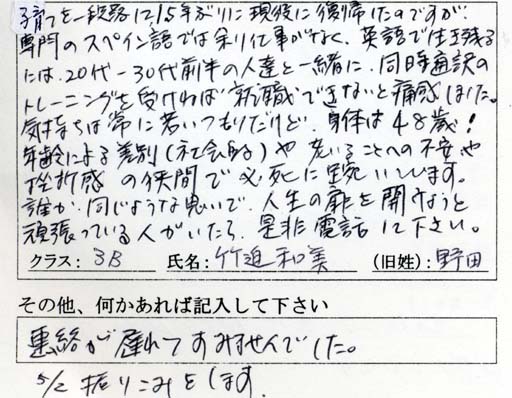 子育てを一段落に15年ぶりに現役に復帰したのですが、
専門のスペイン語では余り仕事がなく、英語で生き残る
には、20代-30代前半の人達と一緒に、同時通訳の
トレーニングを受けねば就職できないと痛感しました。
気持ちは常に若いつもりだけど、身体は48歳!
年齢による差別(社会的)や老いることへの不安や
挫折感の狭間で必死に闘いします。
誰か、同じような思いで、人生の扉を開けようと
頑張っている人がいたら、是非電話に下さい。
クラス: 3B 氏名: 竹迫和美 (旧姓): 野田
その他、何かあれば記入して下さい
連絡が遅れてすみませんでした。
5/2 振りこみをします。